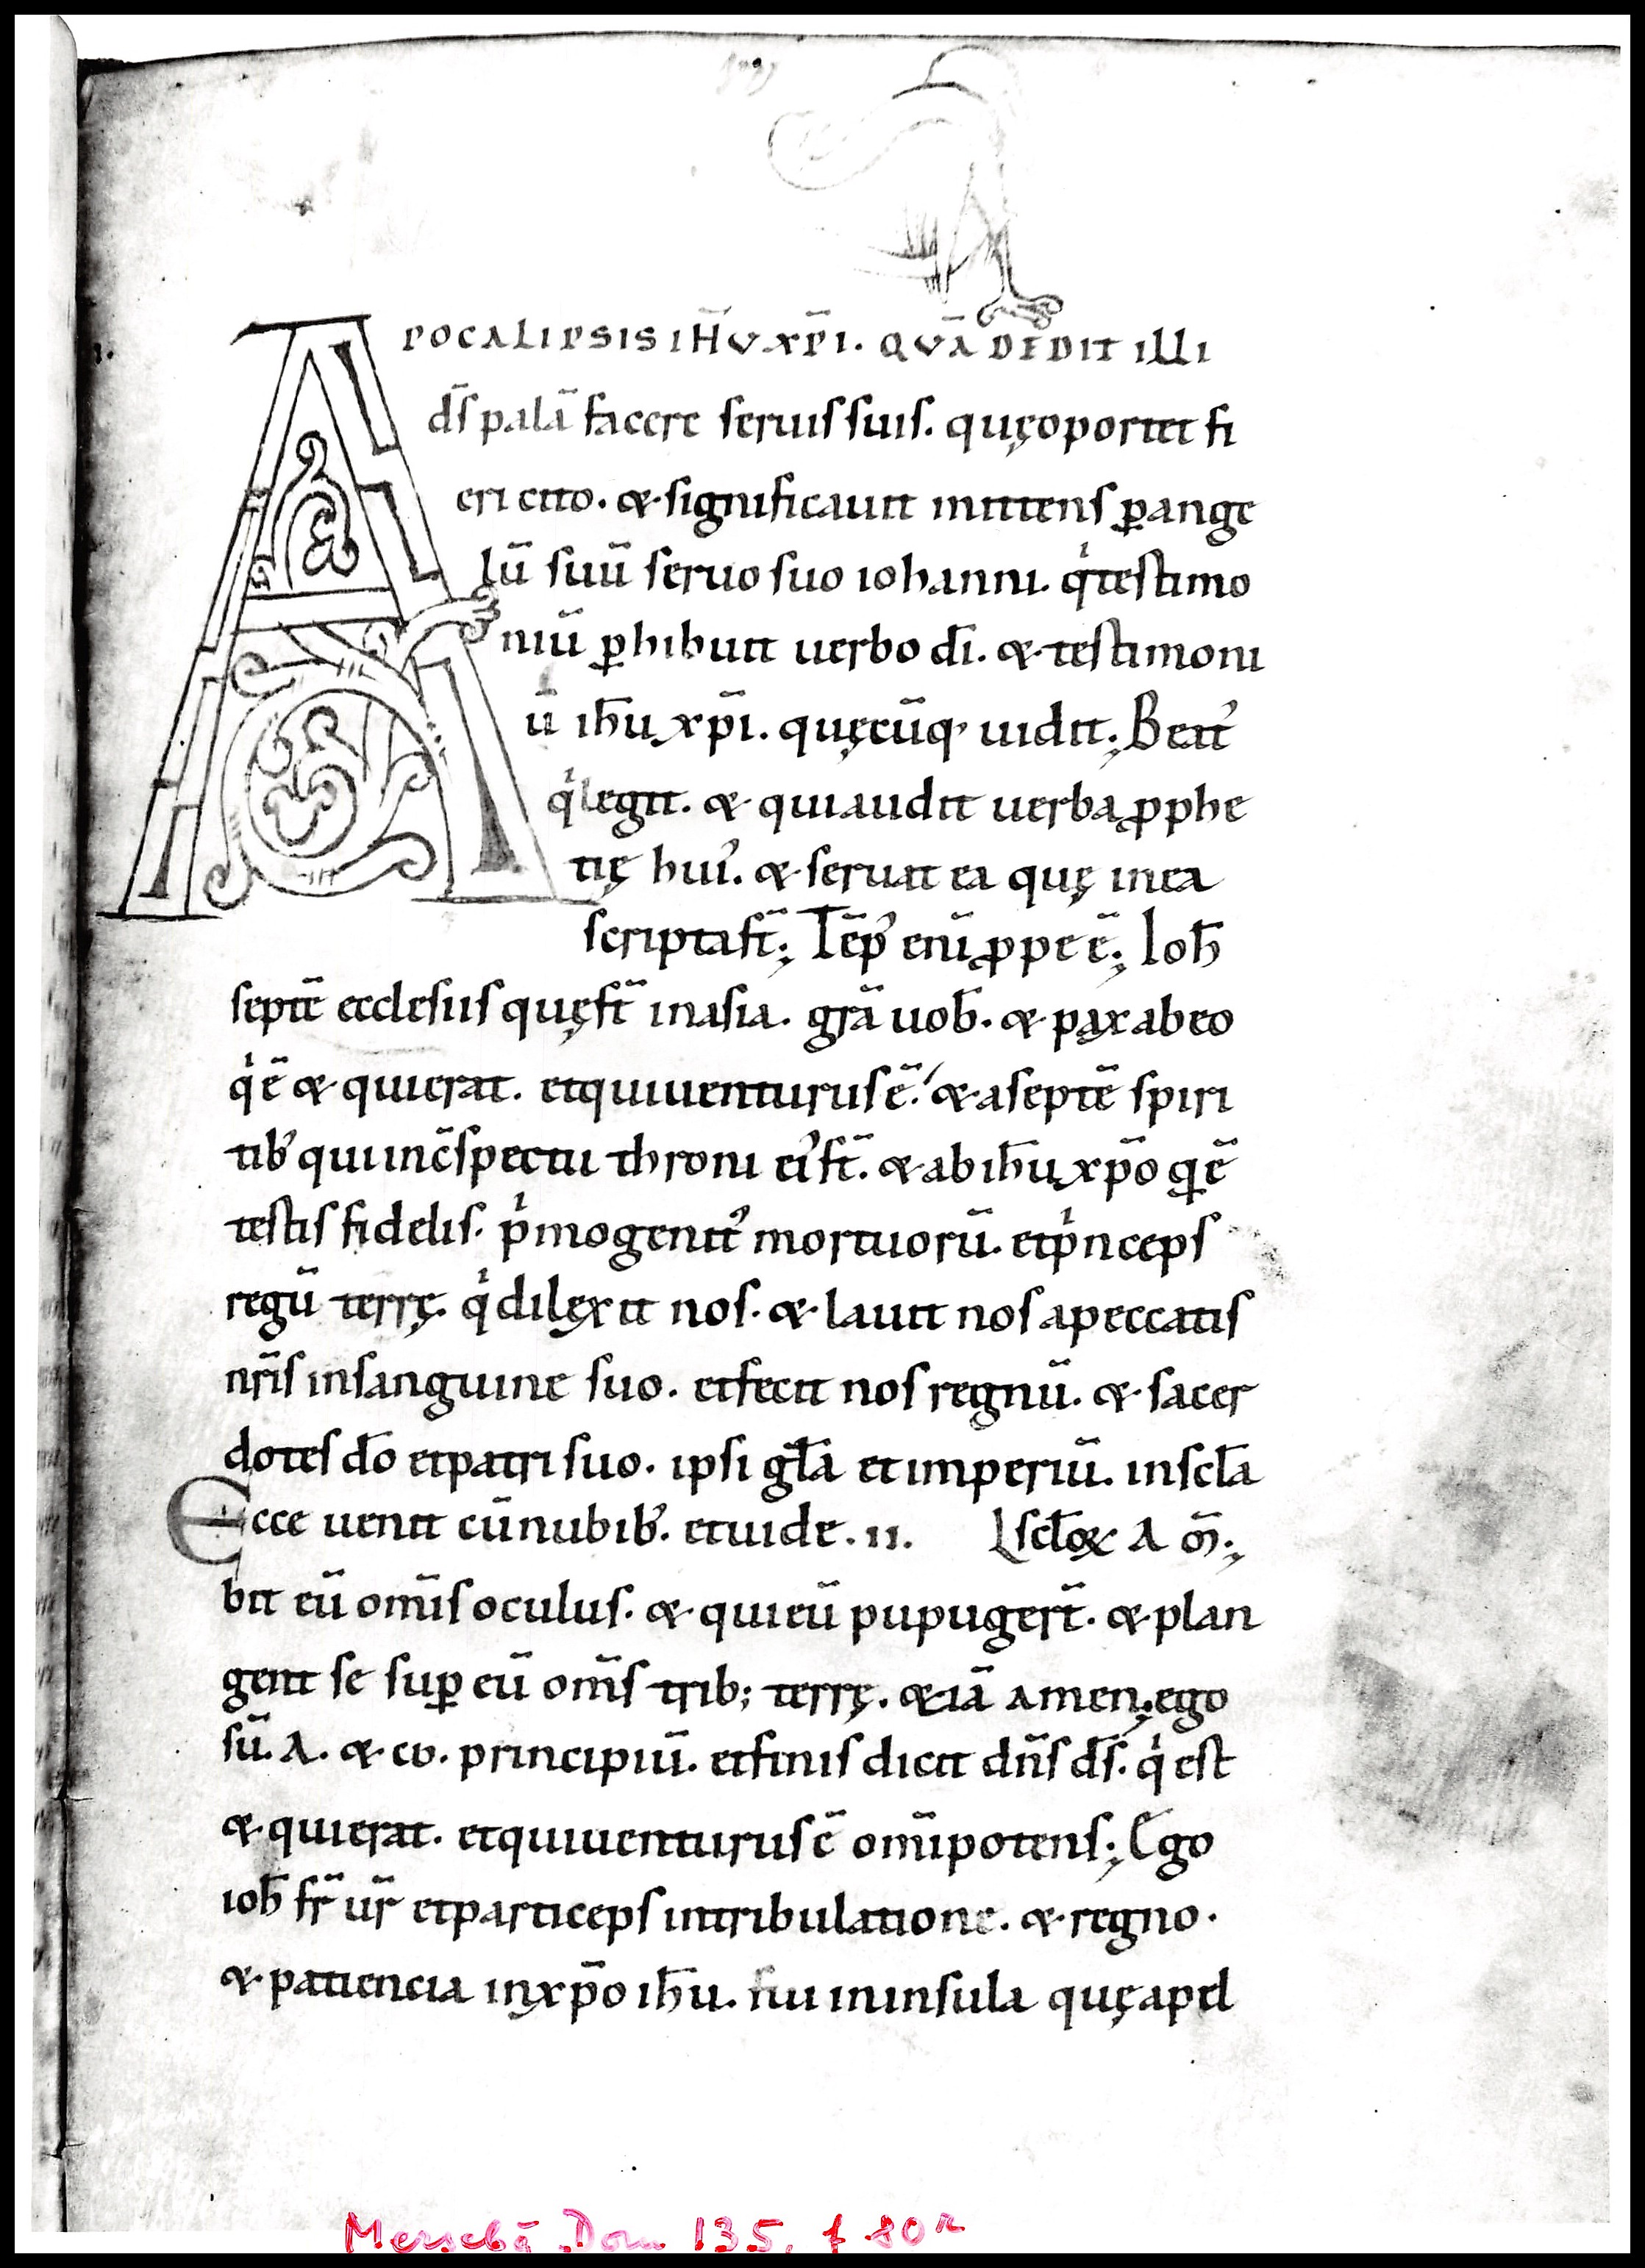 APOCALIPSIS IH̄V XP̄I. QVĀ DEDIT ILLI
d̄s palā facere seruis suis. quę oportet fi
eri cito. & significauit mittens ꝑ ange
lū suū seruo suo iohanni. qͥ testimo
niū ꝑhibuit uerbo dī. & testimoni
ū ih̄u xp̄i. quęcūq; uidit; Beatꝰ
qͥ legit. & qui audit uerba ꝓphe
tię huiꝰ. & seruat ea quę in ea
scripta st̄; Tēpꝰ eni̅ ꝓpe ē; Ioh̄
septē ecclesiis quę st̄ in asia. gr̄a uob̄. & pax ab eo
qͥ ē & qui erat. et qui uenturus ē. & a septē spiri
tibꝰ qui in c̄spectu throni eiꝰ st̄. & ab ih̄u xp̄o q̄ ē
testis fidelis. pͥmogenitꝰ mortuorū. et pͥnceps
regū terrę. qͥ dilexit nos. & lauit nos a peccatis
nr̄is in sanguine suo. et fecit nos regnū. & sacer
dotes dō et patri suo. ipsi gl̄a et imperiū. in scl̄a
Ecce uenit cū nubibꝰ. et uide. II. scl̄oꝝ A M̄;
bit eū om̄is oculus. & qui eū pupuger̄t. & plan
gent se suꝑ eū om̄s trib; terrę. & iā amen; ego
sū. A. & ω. principiū. et finis dicit dn̄s d̄s. qͥ est
& qui erat. et qui uenturus ē om̄ipotens; Ego
ioh̄ fr̄ ur̄ et particeps in tribulatione. & regno.
& patiencia in xp̄o ih̄u. fui in insula quę apel
Merseb̄. Dom 135, f 80r